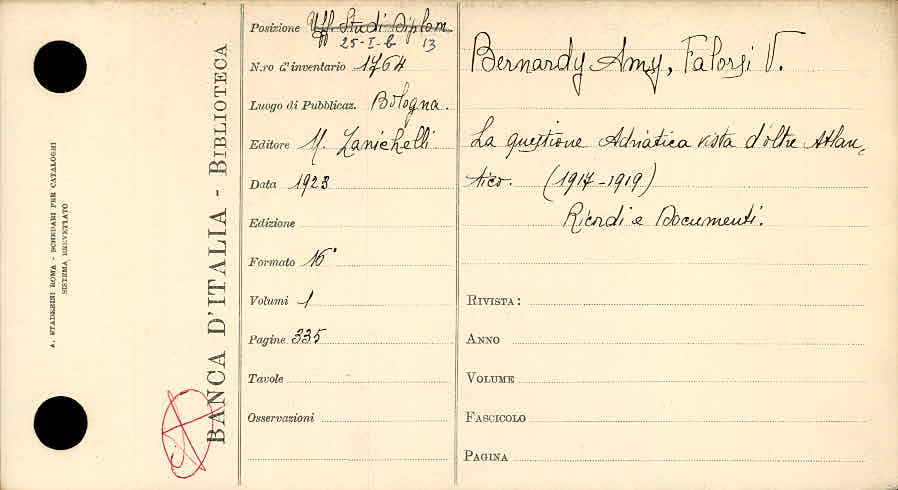 A. STADERINI ROMA - SCHEDARI PER CATALOGHI
SISTEMA BREVETTATO
BANCA D'ITALIA - BIBLIOTECA
Posizione Uff. Studi Diplom.
25-I-b 13
N.ro d'inventario 1764
Luogo di Pubblicaz. Bologna.
Editore N. Zanichelli
Data 1923
Edizione
Formato 16°
Volumi 1
Pagine 335
Tavole
Osservazioni
Bernardy Amy, Falorsi V.
La questione Adriatica vista d'oltre Atlan-
tico. (1917-1919)
Ricordi e Documenti.
RIVISTA:
ANNO
VOLUME
FASCICOLO
PAGINA